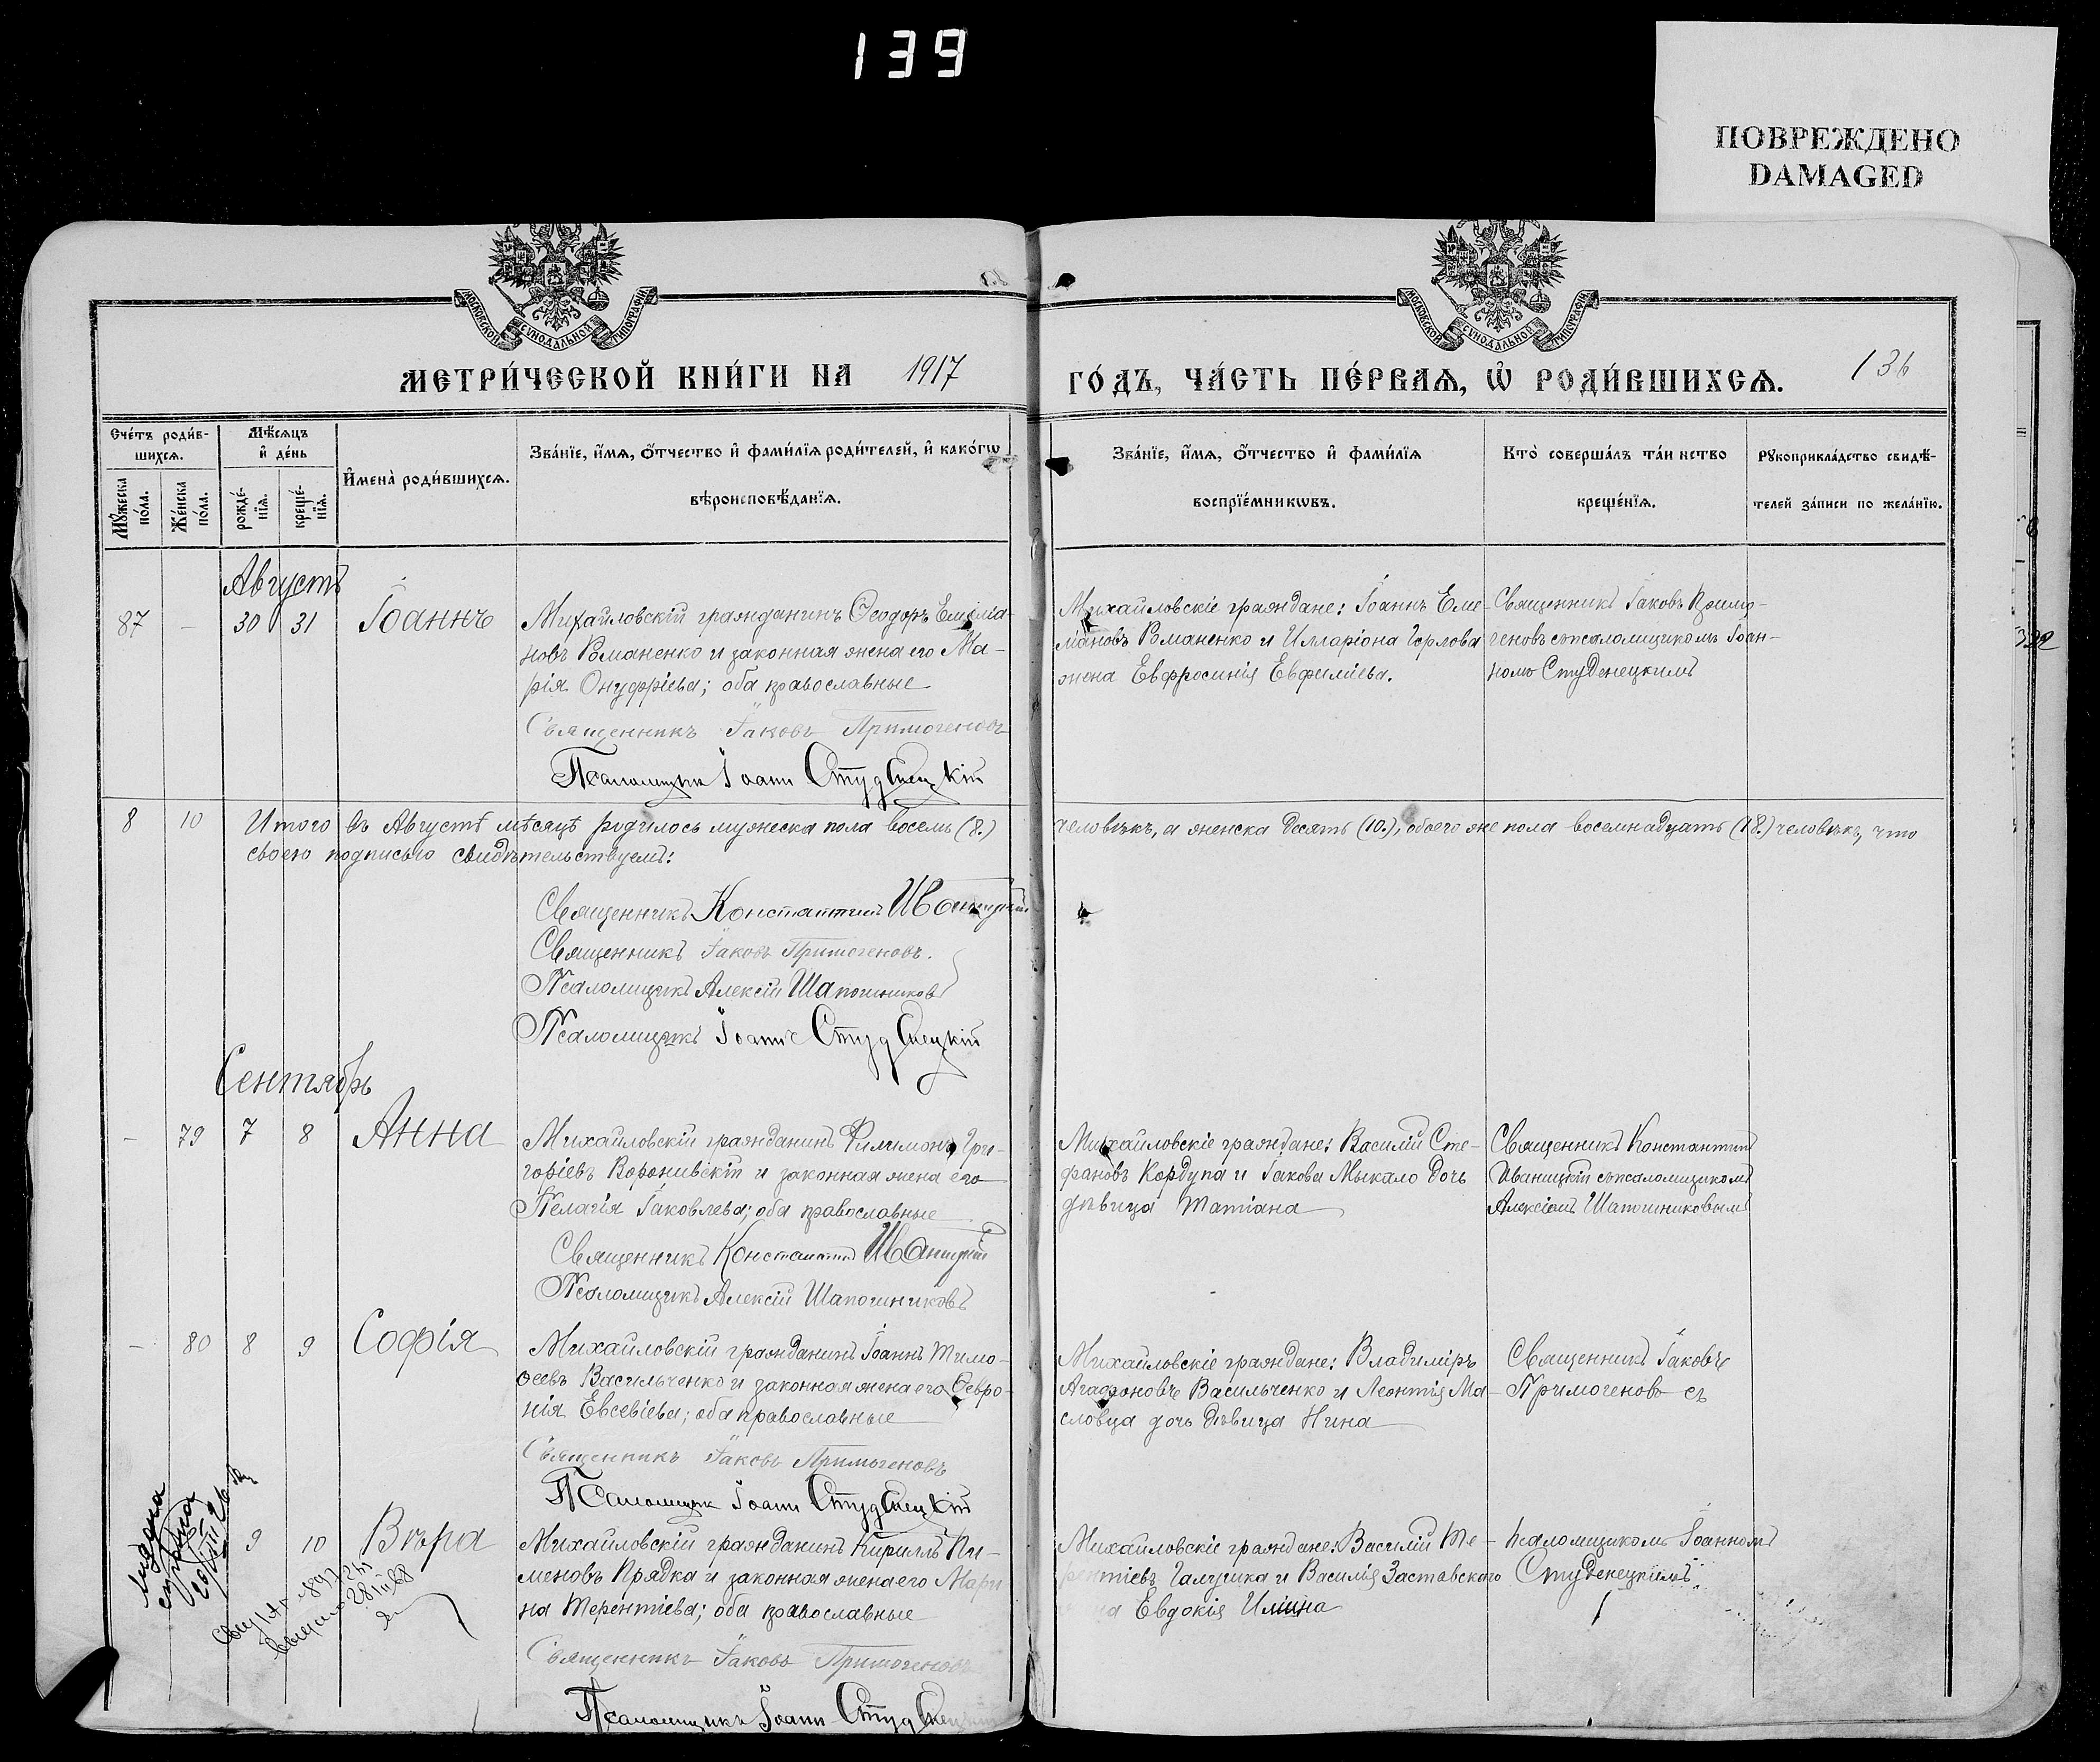 139
ПОВРЕЖДЕНО
DAMAGED
МОСКОВСКОЙ СѴНОДАЛЬНОЙ ТИПОГРАФІИ
МОСКОВСКОЙ СѴНОДАЛЬНОЙ ТИПОГРАФІИ
МЕТРИ́ЧЕСКОЙ КНИ́ГИ НА 1917
ГО́ДЪ, ЧА́СТЬ ПЕ́РВАѦ, Ѽ РОДИ́ВШИХСѦ. 136
Сче́тъ роди́в-
шихсѧ.
Мꙋ́жеска
по́ла.
Же́нска
по́ла.
Мѣ́сѧцъ
и҆ де́нь
рожде́-
нїѧ.
креще́-
нїѧ.
И҆мена̀ роди́вшихсѧ.
Зва́нїе, и҆́мѧ, ѻ҆́тчество и҆ фами́лїѧ роди́телей, и҆ како́гѡ
вѣроисповѣ́данїѧ.
Зва́нїе, и҆́мѧ, ѻ҆́тчество и҆ фами́лїѧ
воспрїе́мникѡвъ.
Кто̀ соверша́лъ та́инство
креще́нїѧ.
Рꙋкоприкла́дство свидѣ́-
телей за́писи по жела́нїю.
Августъ
87 – 30 31 Іоаннъ
Михайловскій гражданинъ Ѳеодоръ Емелиа-
новъ Романенко и законная жена его Ма-
рія Онуфріева; оба православные
Священникъ Іаковъ Примогеновъ
Псаломщикъ Іоаннъ Студенецкій
Михайловскіе граждане: Іоаннъ Еме-
лиановъ Романенко и Илларіона Горлова
жена Евфросинія Евфиміева.
Священникъ Іаковъ Примо-
геновъ съ псаломщикомъ Іоан-
номъ Студенецкимъ
8 10 Итого въ Августѣ мѣсяцѣ родилось мужеска пола восемь (8.) человѣкъ, а женска десять (10.), обоего же пола восемнадцать (18.) человѣкъ, что
своею подписью свидѣтельствуемъ:
Священникъ Константинъ Иваницкій
Священникъ Іаковъ Примогеновъ.
Псаломщикъ Алексій Шапошниковъ
Псаломщикъ Іоаннъ Студенецкій
Сентябрь
– 79 7 8 Анна
Михайловскій гражданинъ Филимонъ Гри-
горіевъ Воронивскій и законная жена его
Пелагія Іаковлева; оба православные
Священникъ Константинъ Иваницкій
Псаломщикъ Алексій Шапошниковъ
Михайловскіе граждане: Василій Сте-
фановъ Кордупа и Іакова Мыкало дочь
дѣвица Татіана
Священникъ Константинъ
Иваницкій съ псаломщикомъ
Алексіемъ Шапошниковымъ
– 80 8 9 Софія
Михайловскій гражданинъ Іоаннъ Тимо-
ѳеевъ Васильченко и законная жена его Ѳевро-
нія Евсевіева; оба православные
Священникъ Іаковъ Примогеновъ
Псаломщикъ Іоаннъ Студенецкій
Михайловскіе граждане: Владиміръ
Агаѳоновъ Васильченко и Леонтія Ма-
словца дочь дѣвица Нина
Священникъ Іаковъ
Примогеновъ съ
9 10 Вѣра
Михайловскій гражданинъ Кириллъ Пи-
меновъ Прядка и законная жена его Мари-
на Терентіева; оба православные
Священникъ Іаковъ Примогеновъ
Псаломщикъ Іоаннъ Студенецкій
Михайловскіе граждане: Василій Те-
рентіевъ Галушка и Василія Заставского
Евдокія Ильина
псаломщикомъ Іоанномъ
Студенецкимъ